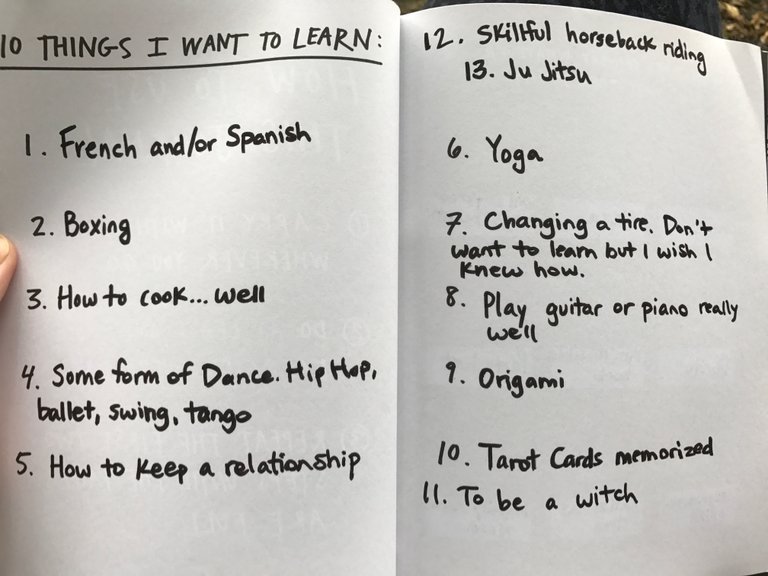 10 THINGS I WANT TO LEARN:
1. French and/or Spanish
2. Boxing
3. How to cook... well
4. Some form of Dance. Hip Hop,
ballet, swing, tango
5. How to keep a relationship
12. Skillful horseback riding
13. Ju Jitsu
6. Yoga
7. Changing a tire. Don't
want to learn but I wish I
knew how.
8. Play guitar or piano really
well
9. Origami
10. Tarot Cards memorized
11. To be a witch